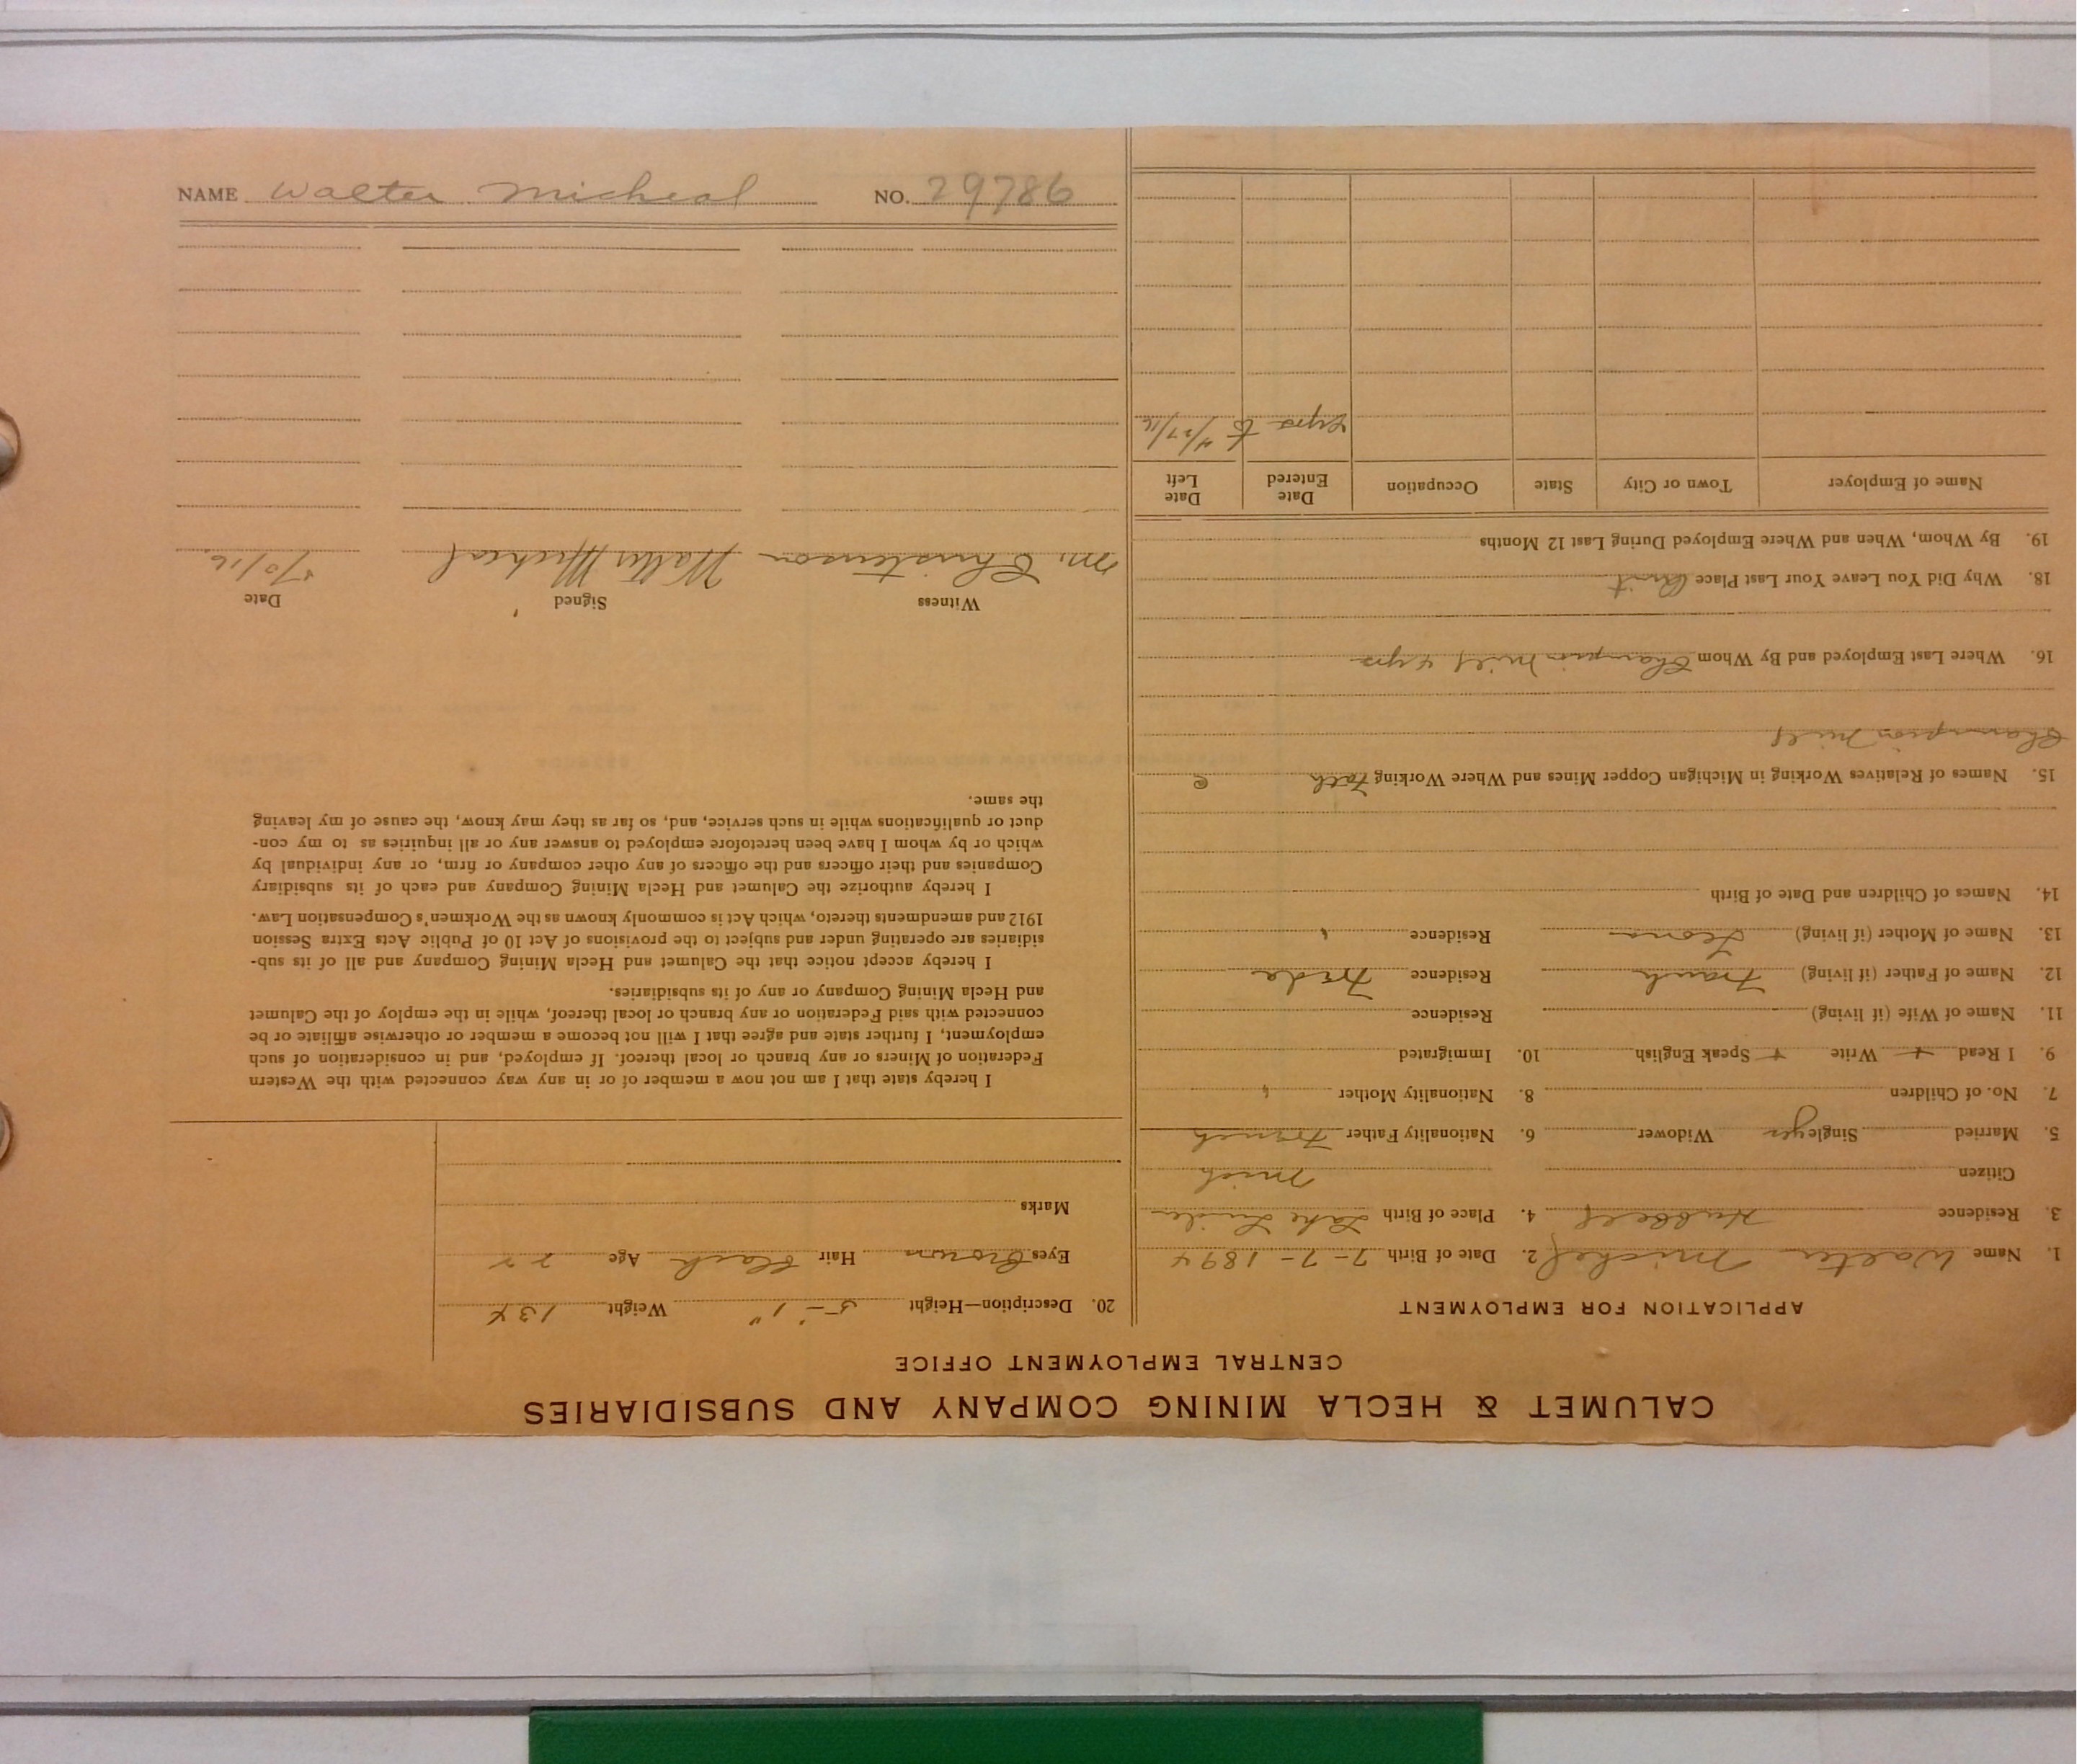 CALUMET & HECLA MINING COMPANY AND SUBSIDIARIES
CENTRAL EMPLOYMENT OFFICE
APPLICATION FOR EMPLOYMENT
1. Name Walter Michel 2. Date of Birth 7-7-1894
3. Residence Hubbell 4. Place of Birth Lake Linden
Citizen Mich
5. Married Single yes Widower 6. Nationality Father French
7. No. of Children 8. Nationality Mother "
9. I Read + Write + Speak English 10. Immigrated
11. Name of Wife (if living) Residence
12. Name of Father (if living) Frank Residence Freda
13. Name of Mother (if living) Residence "
14. Names of Children and Date of Birth
15. Names of Relatives Working in Michigan Copper Mines and Where Working Fath e
Champion Mill
16. Where Last Employed and By Whom Champion Mill 4 yrs
18. Why Did You Leave Your Last Place Quit
19. By Whom, When and Where Employed During Last 12 Months
Name of Employer Town or City State Occupation Date Entered Date Left
yrs to 4/27/16
20. Description—Height 5'-1" Weight 134
Eyes Brown Hair Black Age 22
Marks
I hereby state that I am not now a member of or in any way connected with the Western
Federation of Miners or any branch or local thereof. If employed, and in consideration of such
employment, I further state and agree that I will not become a member or otherwise affiliate or be
connected with said Federation or any branch or local thereof, while in the employ of the Calumet
and Hecla Mining Company or any of its subsidiaries.
I hereby accept notice that the Calumet and Hecla Mining Company and all of its sub-
sidiaries are operating under and subject to the provisions of Act 10 of Public Acts Extra Session
1912 and amendments thereto, which Act is commonly known as the Workmen's Compensation Law.
I hereby authorize the Calumet and Hecla Mining Company and each of its subsidiary
Companies and their officers and the officers of any other company or firm, or any individual by
which or by whom I have been heretofore employed to answer any or all inquiries as to my con-
duct or qualifications while in such service, and, so far as they may know, the cause of my leaving
the same.
Witness Signed Date
M. Christenson Walter Micheal
NAME Walter Micheal NO. 29786